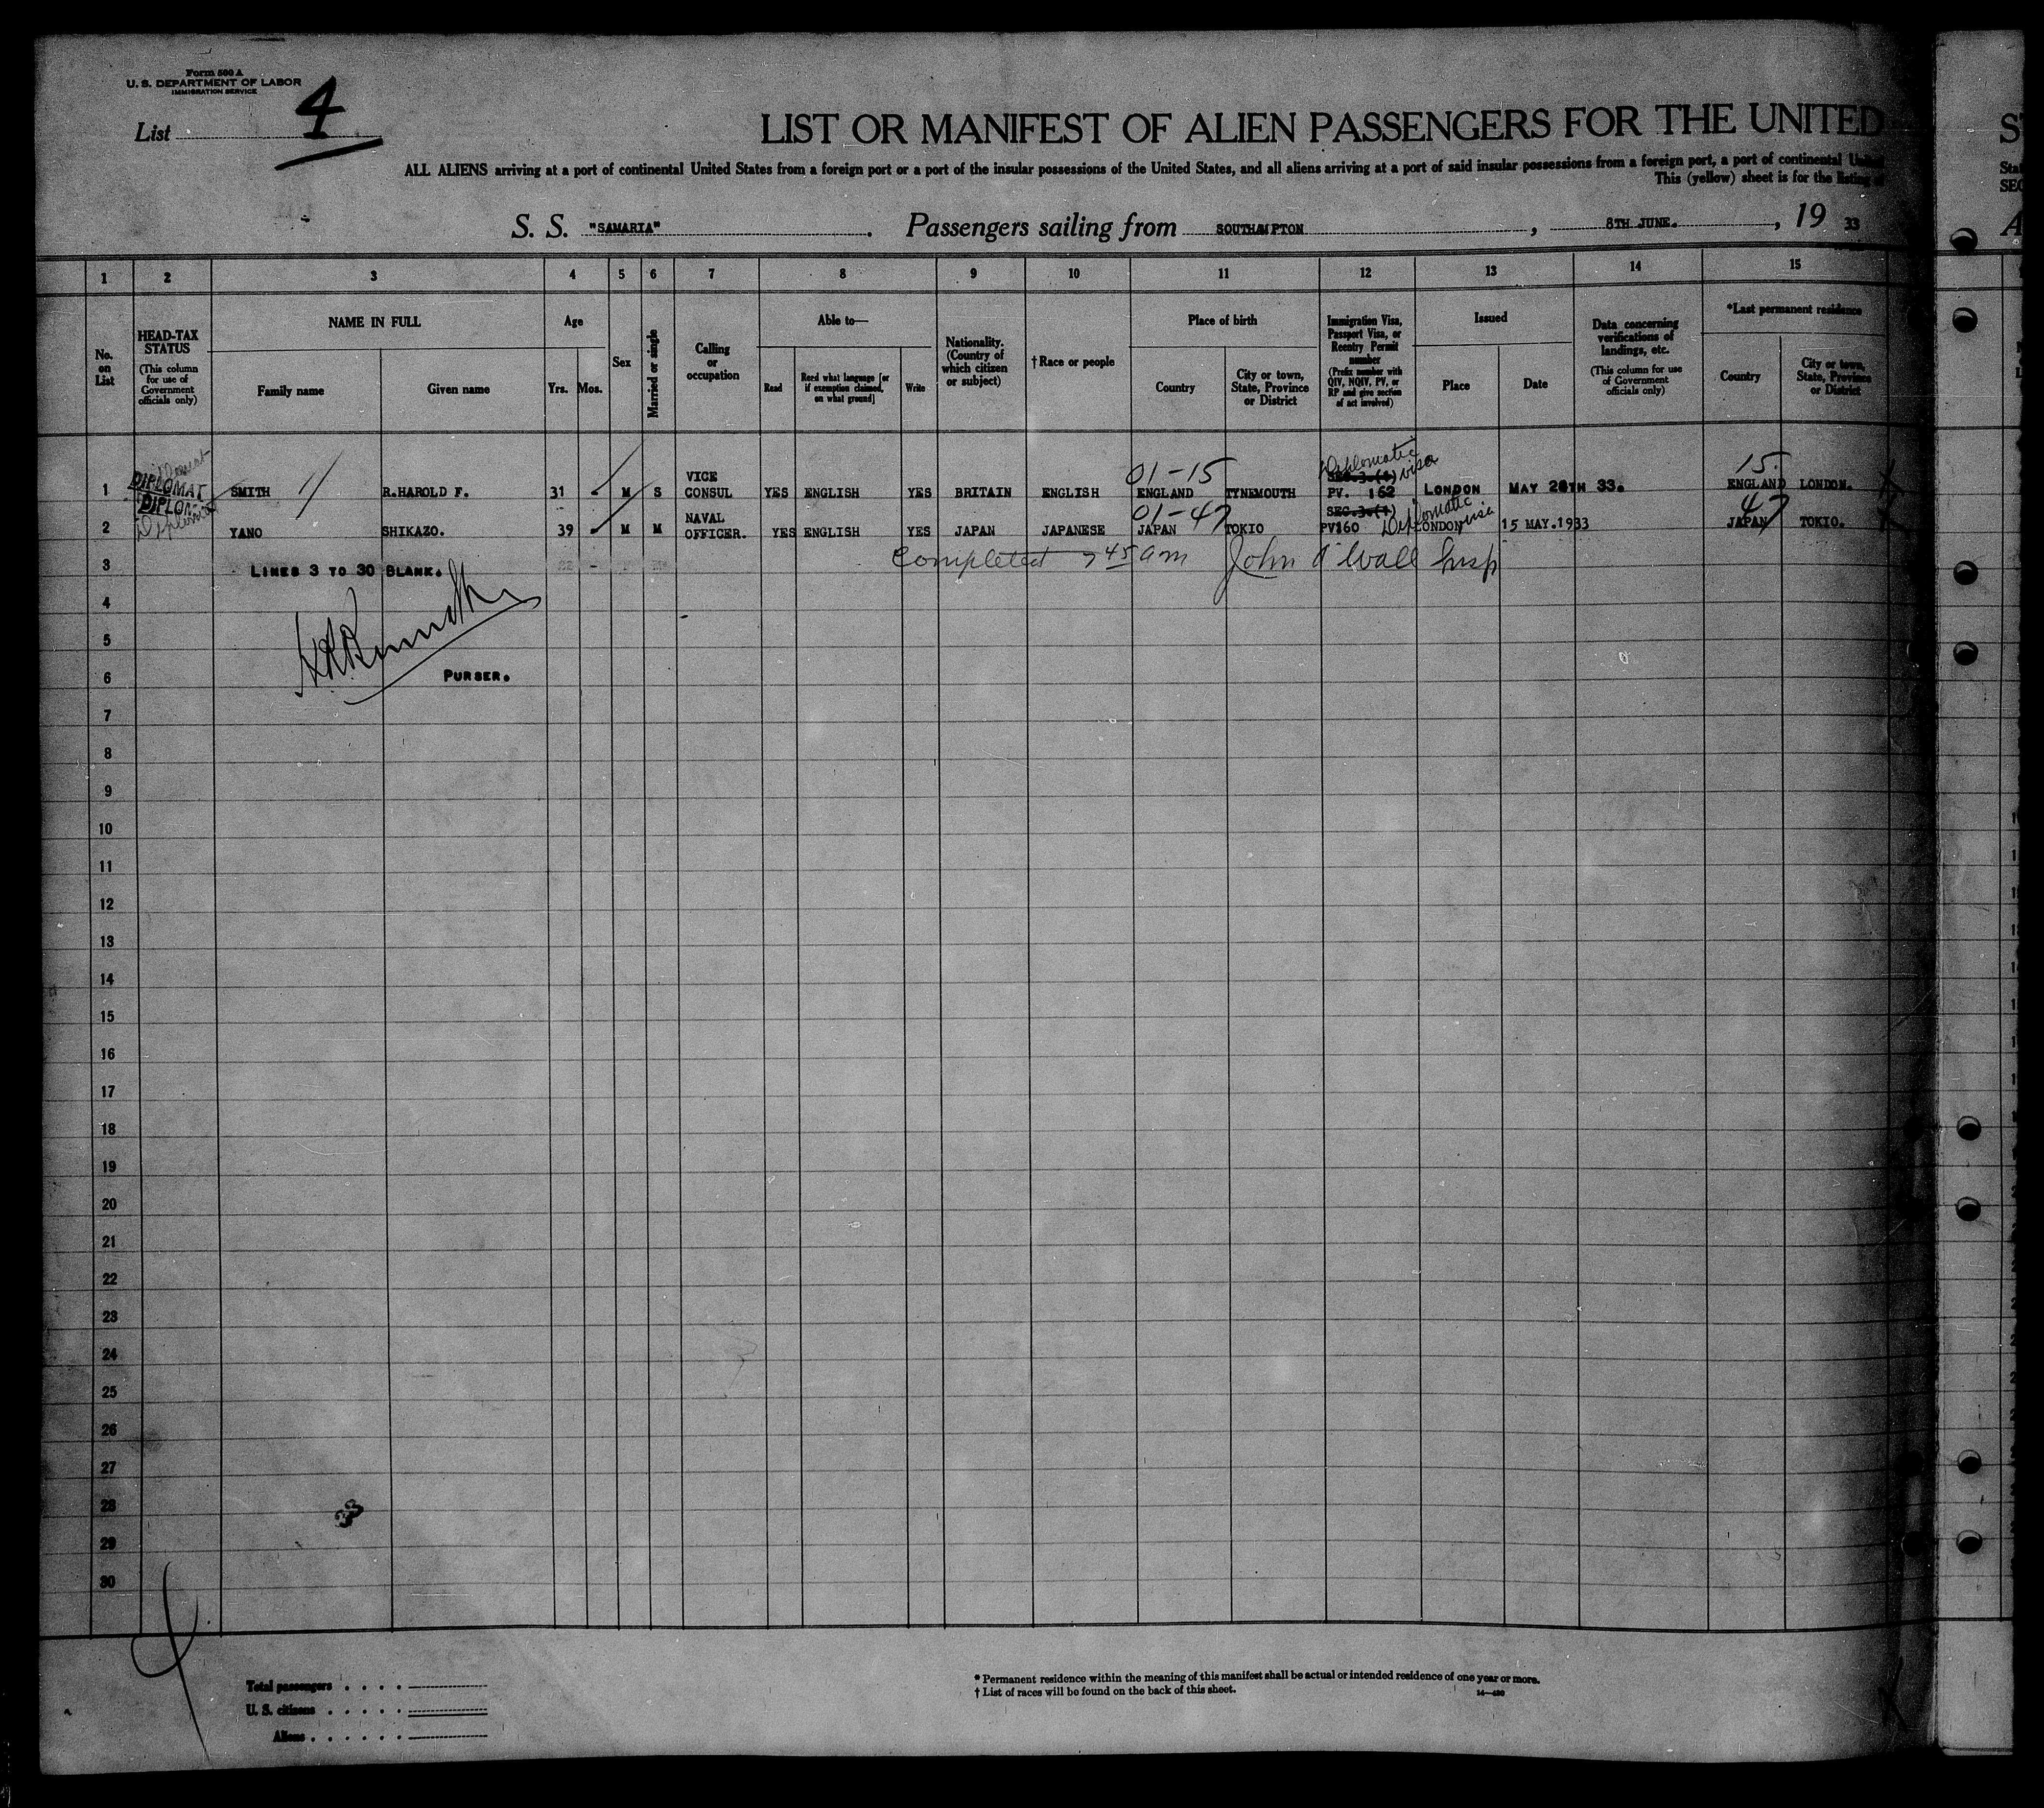 Form 500 A
U. S. DEPARTMENT OF LABOR
IMMIGRATION SERVICE
List 4
LIST OR MANIFEST OF ALIEN PASSENGERS FOR THE UNITED
ALL ALIENS arriving at a port of continental United States from a foreign port or a port of the insular possessions of the United States, and all aliens arriving at a port of said insular possessions from a foreign port, a port of continental United
This (yellow) sheet is for the listing of
S. S. "SAMARIA". Passengers sailing from SOUTHAMPTON, 8TH JUNE., 19 33
1 2 3 4 5 6 7 8 9 10 11 12 13 14 15
No. on List
HEAD-TAX STATUS
(This column for use of Government officials only)
NAME IN FULL
Family name
Given name
Age
Yrs. Mos.
Sex
Married or single
Calling or occupation
Able to—
Read
Read what language [or if exemption claimed, on what ground]
Write
Nationality. (Country of which citizen or subject)
† Race or people
Place of birth
Country
City or town, State, Province or District
Immigration Visa, Passport Visa, or Reentry Permit number
(Prefix number with QIV, NQIV, PV, or RP and give section of act involved)
Issued
Place
Date
Data concerning verifications of landings, etc.
(This column for use of Government officials only)
*Last permanent residence
Country
City or town, State, Province or District
01-15 Diplomatic visa 15.
1 DIPLOMAT SMITH R.HAROLD F. 31 - M S VICE CONSUL YES ENGLISH YES BRITAIN ENGLISH ENGLAND TYNEMOUTH SEC.3.(1) PV. 162 LONDON MAY 26TH 33. ENGLAND LONDON.
DIPLOM
01-47 Diplomatic visa 47
2 Diplomat YANO SHIKAZO. 39 M M NAVAL OFFICER. YES ENGLISH YES JAPAN JAPANESE JAPAN TOKIO SEC.3.(1) PV160 LONDON 15 MAY.1933 JAPAN TOKIO.
3 LINES 3 TO 30 BLANK. Completed 7 45 am John A Wall Insp
4
5
6 PURSER.
7
8
9
10
11
12
13
14
15
16
17
18
19
20
21
22
23
24
25
26
27
28
33
29
30
Total passengers . . . .
U. S. citizens . . . . .
Aliens . . . . . .
* Permanent residence within the meaning of this manifest shall be actual or intended residence of one year or more.
† List of races will be found on the back of this sheet.
14—430